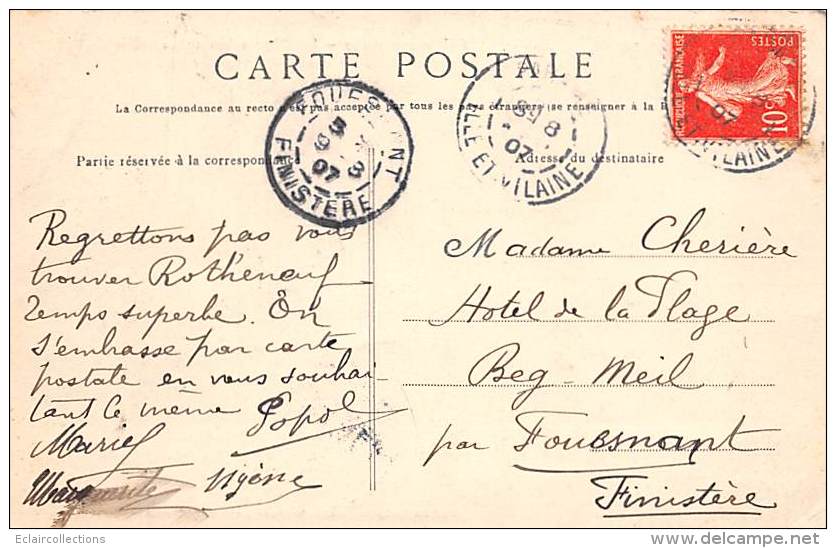 CARTE POSTALE
La Correspondance au recto n'est pas acceptée par tous les pays étrangers (se renseigner à la
Partie réservée à la correspondance
Adresse du destinataire
FOUESNANT
FINISTÈRE
5 8
07
ILLE ET VILAINE
8
07
RÉPUBLIQUE FRANÇAISE
POSTES
10
VILAINE
07
Regrettons pas vous
trouver Rothéneuf
Temps superbe. On
s'embrasse par carte
postale en vous souhai-
tant le même Popol
Marie
Marguerite
Madame Cherière
Hotel de la Plage
Beg-Meil
par Fouesnant
Finistère
Eclaircollections
delcampe.net